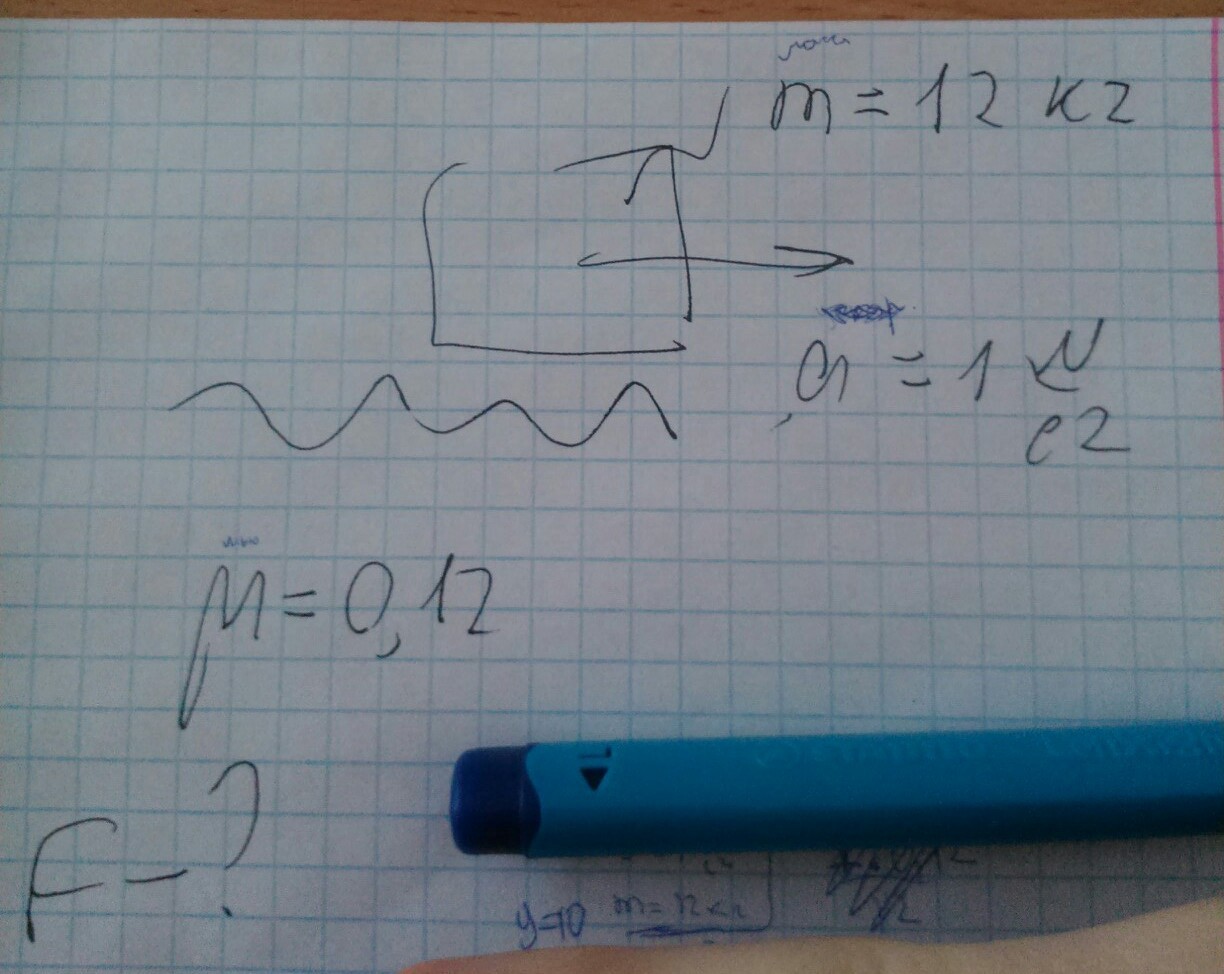 m = 12 кг
a = 1 м
с2
μ = 0,12
F - ?
y=10
m = 12 кг